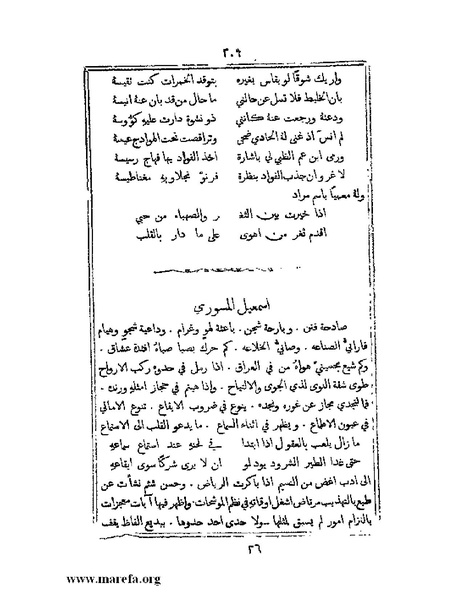 ٢٠٩
واريك شوقًا لو يقاس بغيره بتوقد الخمرات كنت تقيسة
بان الخليط فلا تسل عن حالتي ما حال من قد بان عنة انيسة
ودعتة ورجعت عنة كانني ذو نشوة دارت عليهِ كؤوسة
لم انسَ اذ غنى لة الحادي ضحى وتراقصت تحت الهوادج عيسة
ورمى ابن عم الظبي لي باشارة اخذ الفواد بها فهاج رسيسة
لا غروان جذب الفواد بنظرة فرنوّ نجلاويهِ مغناطيسة
ولة معميًا باسم مراد
اذا خيرت بين الثغـ ـر والصهباء من حبي
اقدم ثغر من اهوى على ما دار بالقلب
اسمعيل المسوري
صادحة فنن . وبارحة شجن . باعثة لهو وغرام . وداعية شجو وهيام
فارابيُّ الصناعه . وصابيُّ الخلاعه . كم حركَ بصبا صباءُ افئدة عشاق .
وكم شيع بحسينيّ هواهُ من في العراق . اذا رمل في حدو ركب الارواح
طوى شقة النوى لذي الجوى والالتياح . واذا هيتم في حجاز امثلهِ ورنك .
فالنجدي مجاز عن غوره ونجده . ينوع في ضروب الايقاع . تنوع الاماني
في عيون الاطماع . ويظهر في اثناء السماع . ما يدعو القلب الى الاستماع
ما زال يلعب بالعقول اذا ابتدا في لحنهِ عند استماع سماعهِ
حتى غدا الطير الشرود يود لو ان لا يرى شركًا سوى ايقاعهِ
الى ادب اغض من النسيم اذا باكرت الرياض . وحسن شيم نشأت عن
طبع بالتهذيب مرتاض اشغل اوقاتهُ في نظم الموشحات واظهر فيها آيات معجزات
بالتزام امور لم يسبق لمثلها سولا حدى احد حدوها . ببديع الفاظ يقف
٢٦
www.marefa.org